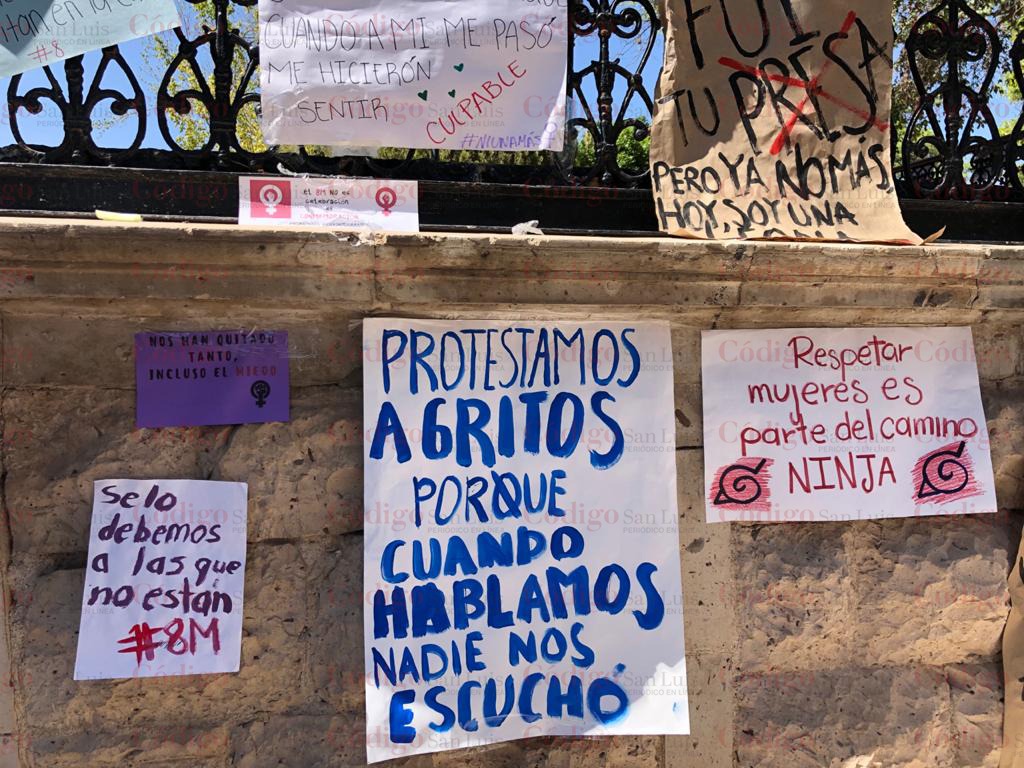 #8
CUANDO A MI ME PASÓ
ME HICIERÓN
SENTIR CULPABLE
#NIUNAMÁS
FUI
TU PRESA
PERO YA NO MÁS,
HOY, SOY UNA
el 8M no es
celebración
es
CONMEMORACIÓN
NOS HAN QUITADO
TANTO,
INCLUSO EL MIEDO
PROTESTAMOS
A GRITOS
PORQUE
CUANDO
HABLAMOS
NADIE NOS
ESCUCHÓ
Respetar
mujeres es
parte del camino
NINJA
se lo
debemos
a las que
no están
#8M
Código San Luis
PERIÓDICO EN LÍNEA